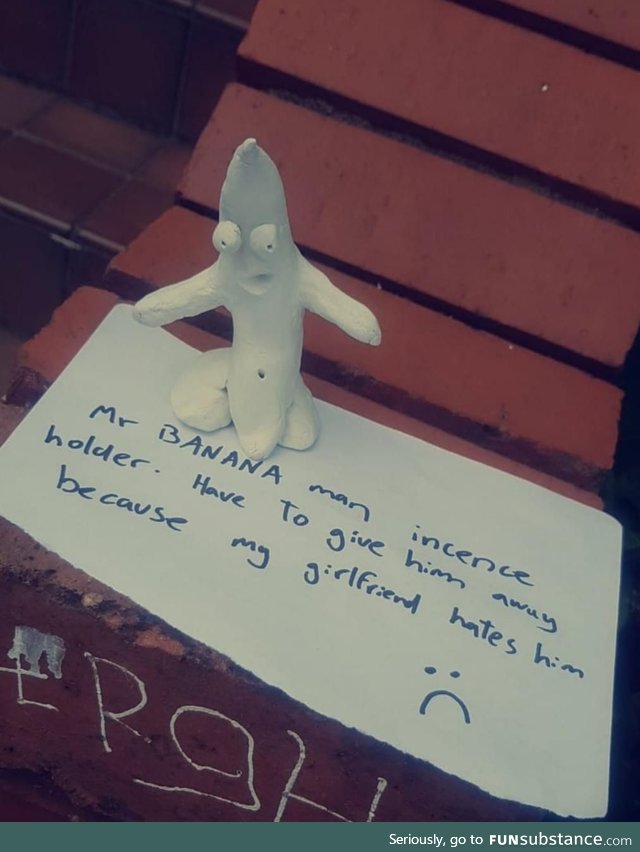 Mr BANANA man incence
holder. Have to give him away
because my girlfriend hates him
Seriously, go to FUNsubstance.com